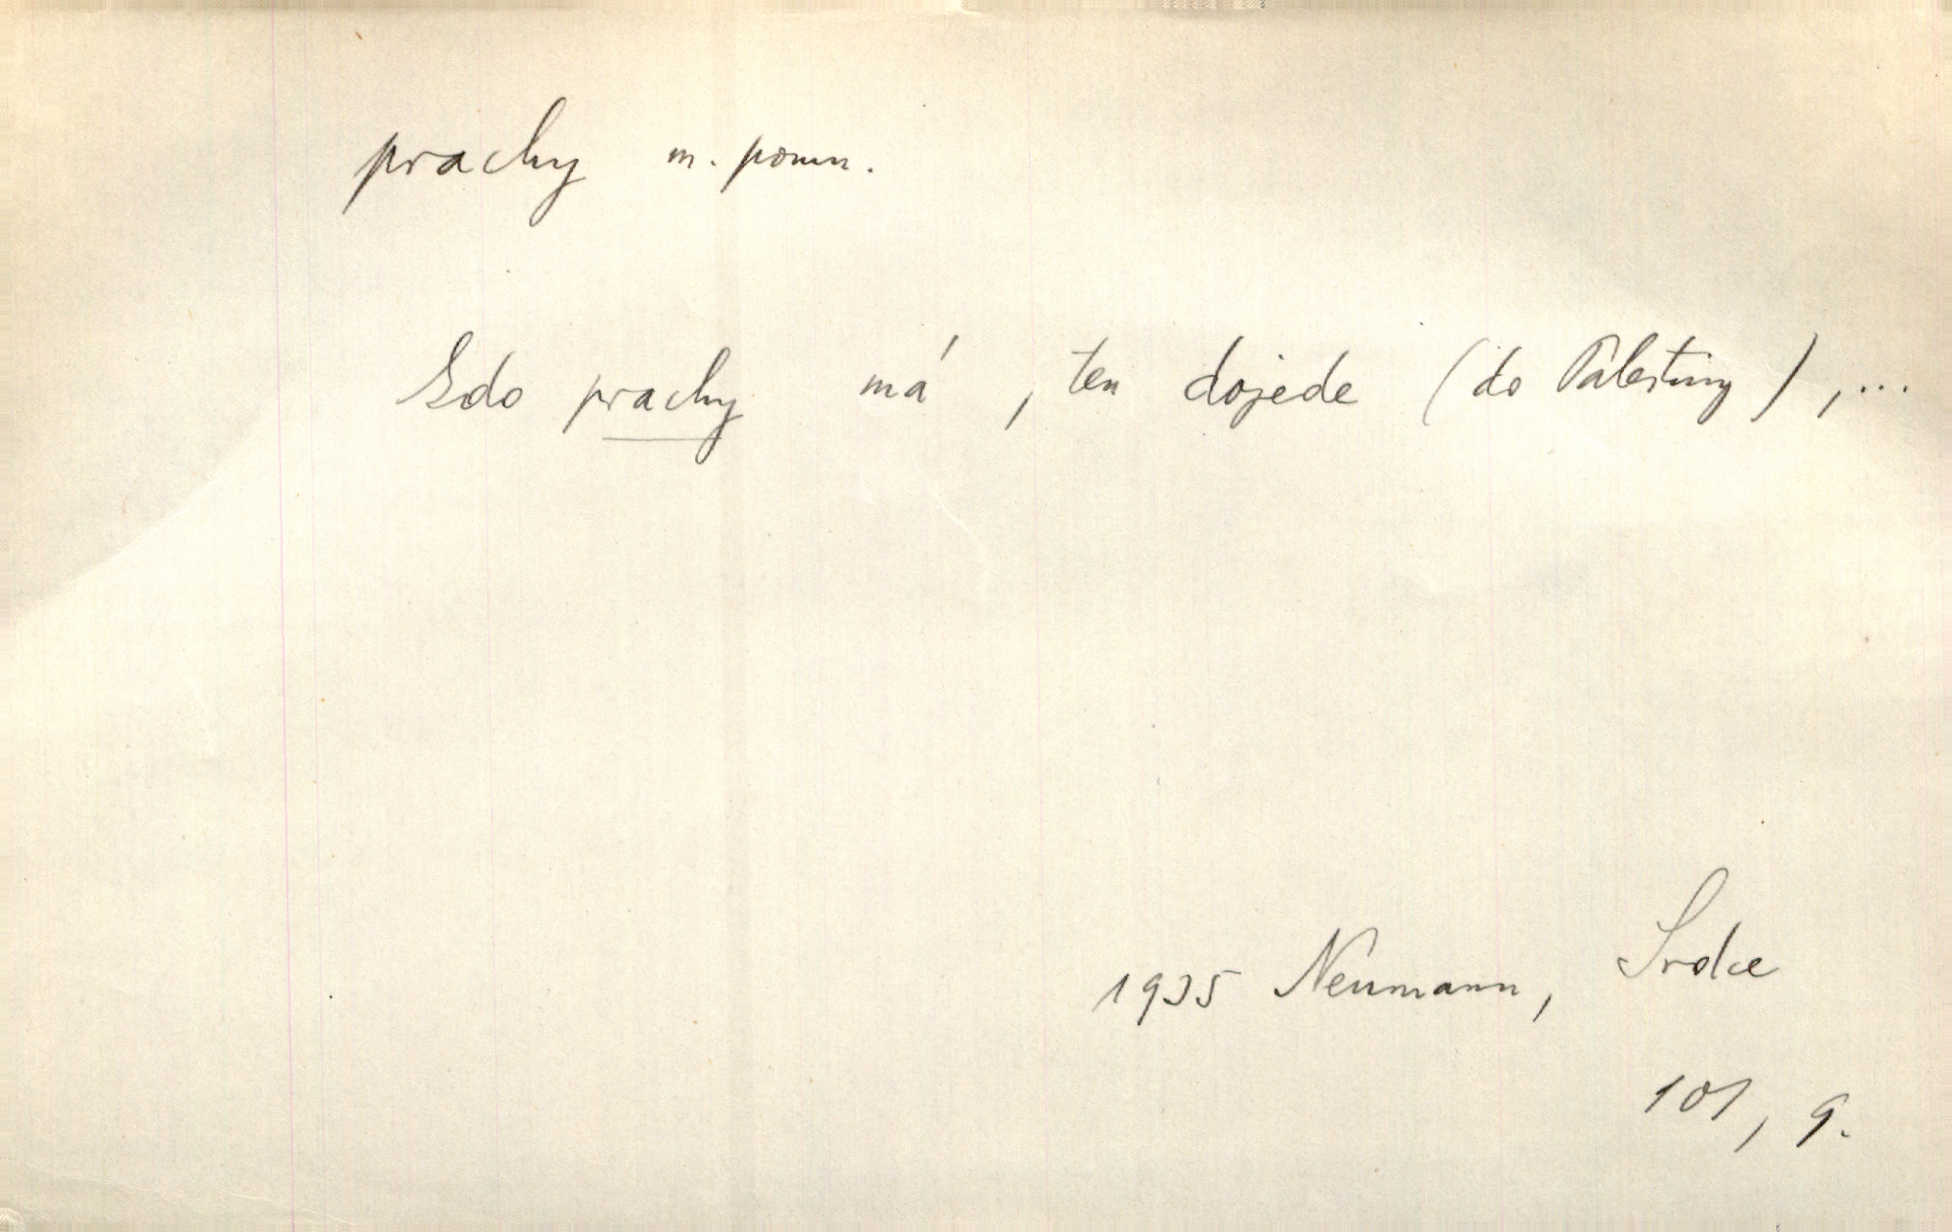 prachy m. pomn.
Kdo prachy má, ten dojede (do Palestiny), ...
1935 Neumann, Srdce
101, 9.